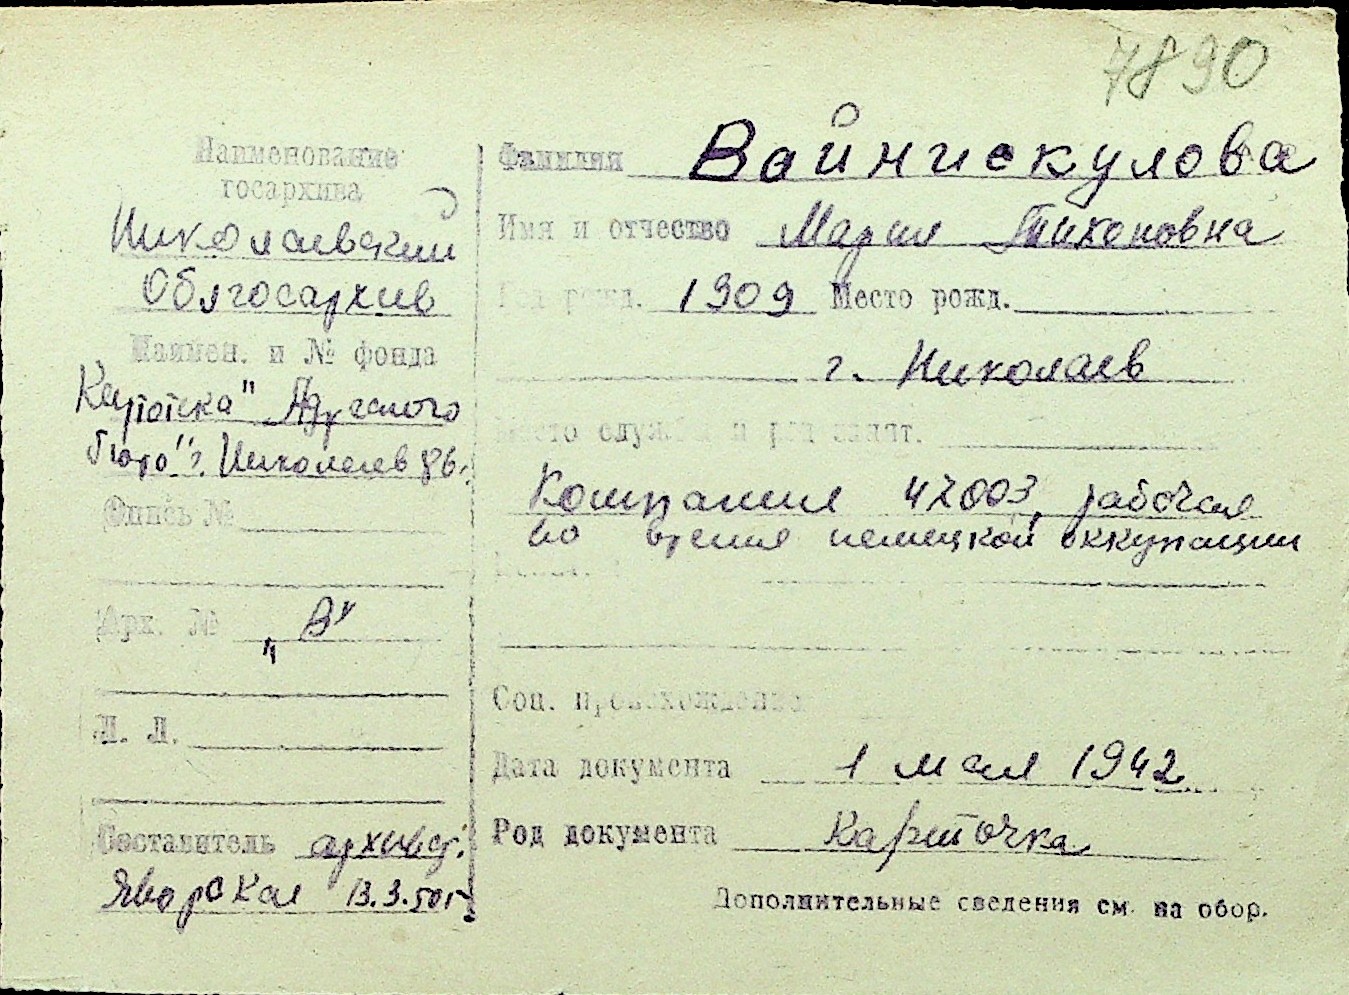 7890
Наименование
госархива
Николаевский
Облгосархив
Наимен. и № фонда
Картотека "Адресного
бюро" г. Николаев
Опись №
Арх. № „В"
Л. Л.
Составитель архивар.
Яворская 13.3.50г.
Фамилия Войнискулова
Имя и отчество Мария Тихоновна
Год рожд. 1909 Место рожд.
г. Николаев
Место службы и род занят.
Компания 42003, рабочая
во время немецкой оккупации
Соц. происхождение
Дата документа 1 мая 1942
Род документа Карточка
Дополнительные сведения см. на обор.